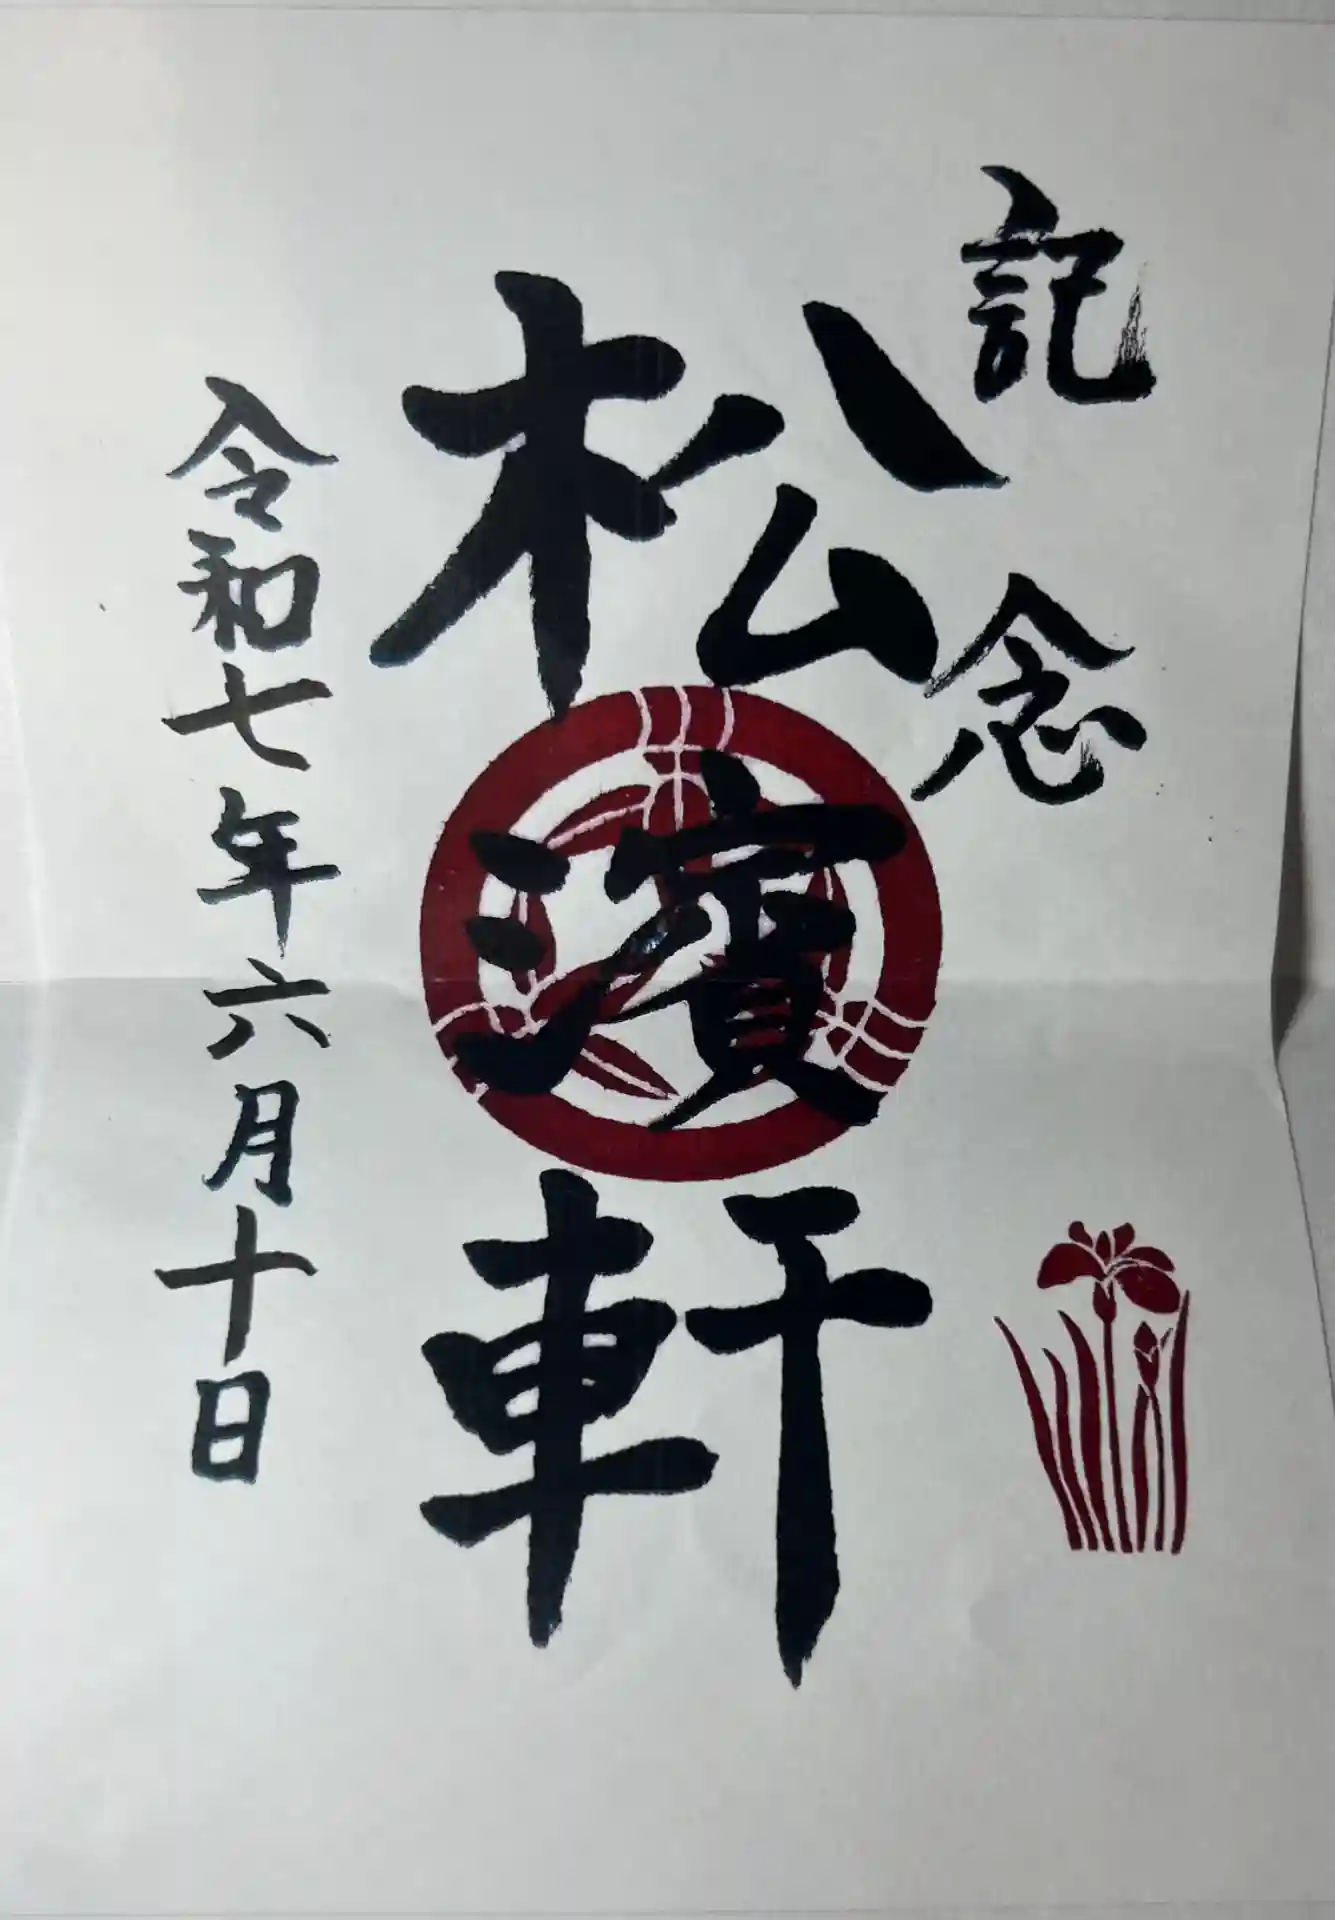 記念
松濱軒
令和七年六月十日